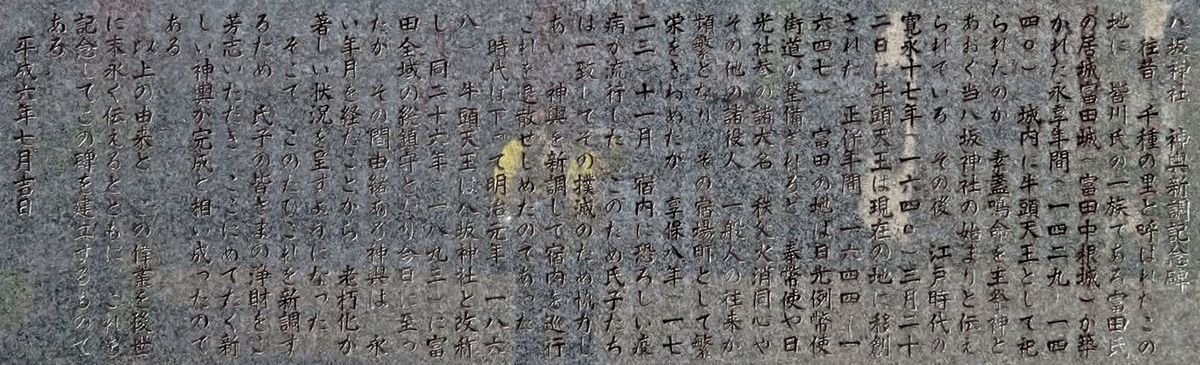 八坂神社 神輿新調記念碑
往昔 千種の里と呼ばれたこの
地に 皆川氏の一族である富田氏
の居城富田城(富田中根城)が築
かれた永享年間(一四二九~一四
四〇) 城内に牛頭天王として祀
られたのが 素盞嗚命を主祭神と
あおぐ当八坂神社の始まりと伝え
られている その後 江戸時代の
寛永十七年(一六四〇)三月二十
二日に牛頭天王は現在の地に移創
された 正保年間(一六四四~一
六四七) 富田の地は日光例幣使
街道が整備されるど 奉幣使や日
光社参の諸大名 秩父火消同心や
その他の諸役人 一般人の往来が
頻繁となり その宿場町として繁
栄をきわめたが 享保八年(一七
二三)十一月 宿内に恐ろしい疫
病が流行した このため氏子たち
は一致してその撲滅のため協力し
あい 神輿を新調して宿内を巡行
これを退散せしめたのであった
時代は下って明治元年(一八六
八) 牛頭天王は八坂神社と改称
し 同二十六年(一八九三)に富
田全域の総鎮守となり今日に至っ
たが その間由緒ある神輿は 永
い年月を経たことから 老朽化が
著しい状況を呈すようになった
そこで このたびこれを新調す
るため 氏子の皆さまの浄財をご
芳志いただき ここにめでたく新
しい神輿が完成と相い成ったので
ある
以上の由来と この偉業を後世
に末永く伝えるとともに これを
記念してこの碑を建立するもので
ある
平成六年七月吉日